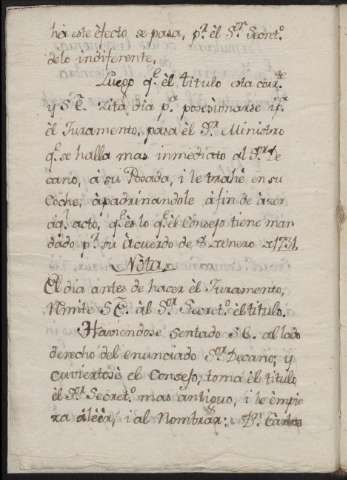 há este efecto se pasa, pr. el Sr. Secret.o
delo indiferente.
Luego q.e el titulo esta corr.te
y S.E. zita dia p.a posesionarse, y p.a
el Juramento, pasa el Sr. Ministro
q.e se halla mas inmediato al Sr. De
cano, á su Posada, i le trahe en su
Coche, apadrinandole á fin de azer
dho. acto, q.e es lo q.e el Consejo tiene man
dado p.r su Acuerdo de 8. de enero de 1731.
Nota
El dia antes de hacer el Juramento,
remite S.E. al Sr. Secret.o el titulo.
Haviendose sentado S.E. al lado
derecho del enunciado Sr. Decano; y
cuviertose el Consejo, toma el titulo
el Sr. Secret.o mas antiguo, i le empie
za á leér, i al Nombrar: Dn. Carlos